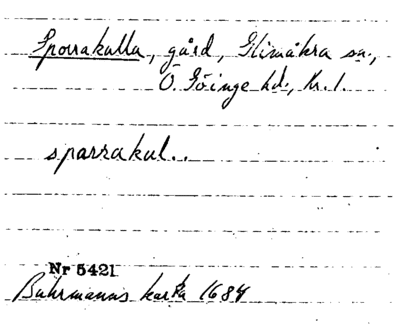 Sporrakulla, gård, Glimåkra sn.,
Ö. Göinge hd., Kr. l.
sparrakul..
Nr 5421
Buhrmanns karta 1684